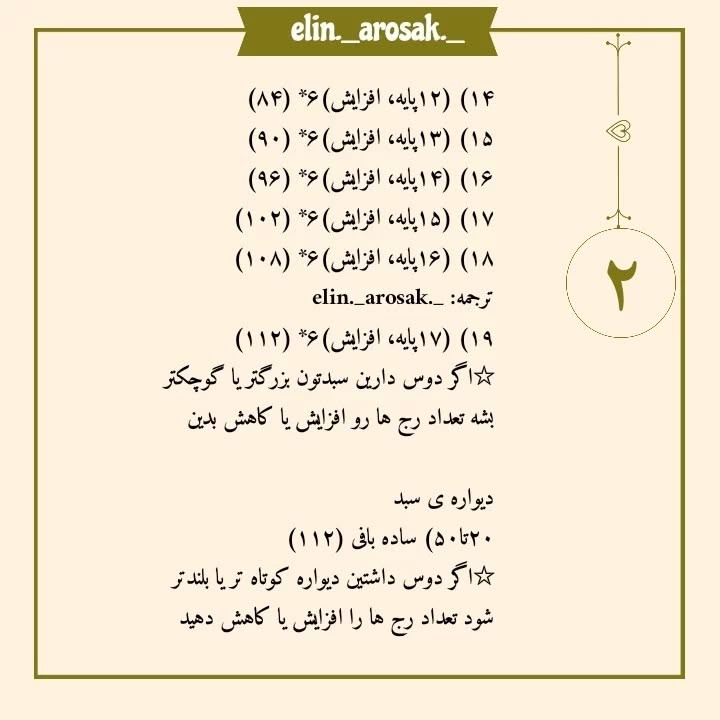 elin._arosak._
۱۴) (۱۲پایه، افزایش)۶* (۸۴)
۱۵) (۱۳پایه، افزایش)۶* (۹۰)
۱۶) (۱۴پایه، افزایش)۶* (۹۶)
۱۷) (۱۵پایه، افزایش)۶* (۱۰۲)
۱۸) (۱۶پایه، افزایش)۶* (۱۰۸)
ترجمه: _.elin._arosak
۱۹) (۱۷پایه، افزایش)۶* (۱۱۲)
☆اگر دوس دارین سبدتون بزرگتر یا گوچکتر
بشه تعداد رج ها رو افزایش یا کاهش بدین
دیواره ی سبد
۲۰تا۵۰) ساده بافی (۱۱۲)
☆اگر دوس داشتین دیواره کوتاه تر یا بلندتر
شود تعداد رج ها را افزایش یا کاهش دهید
۲